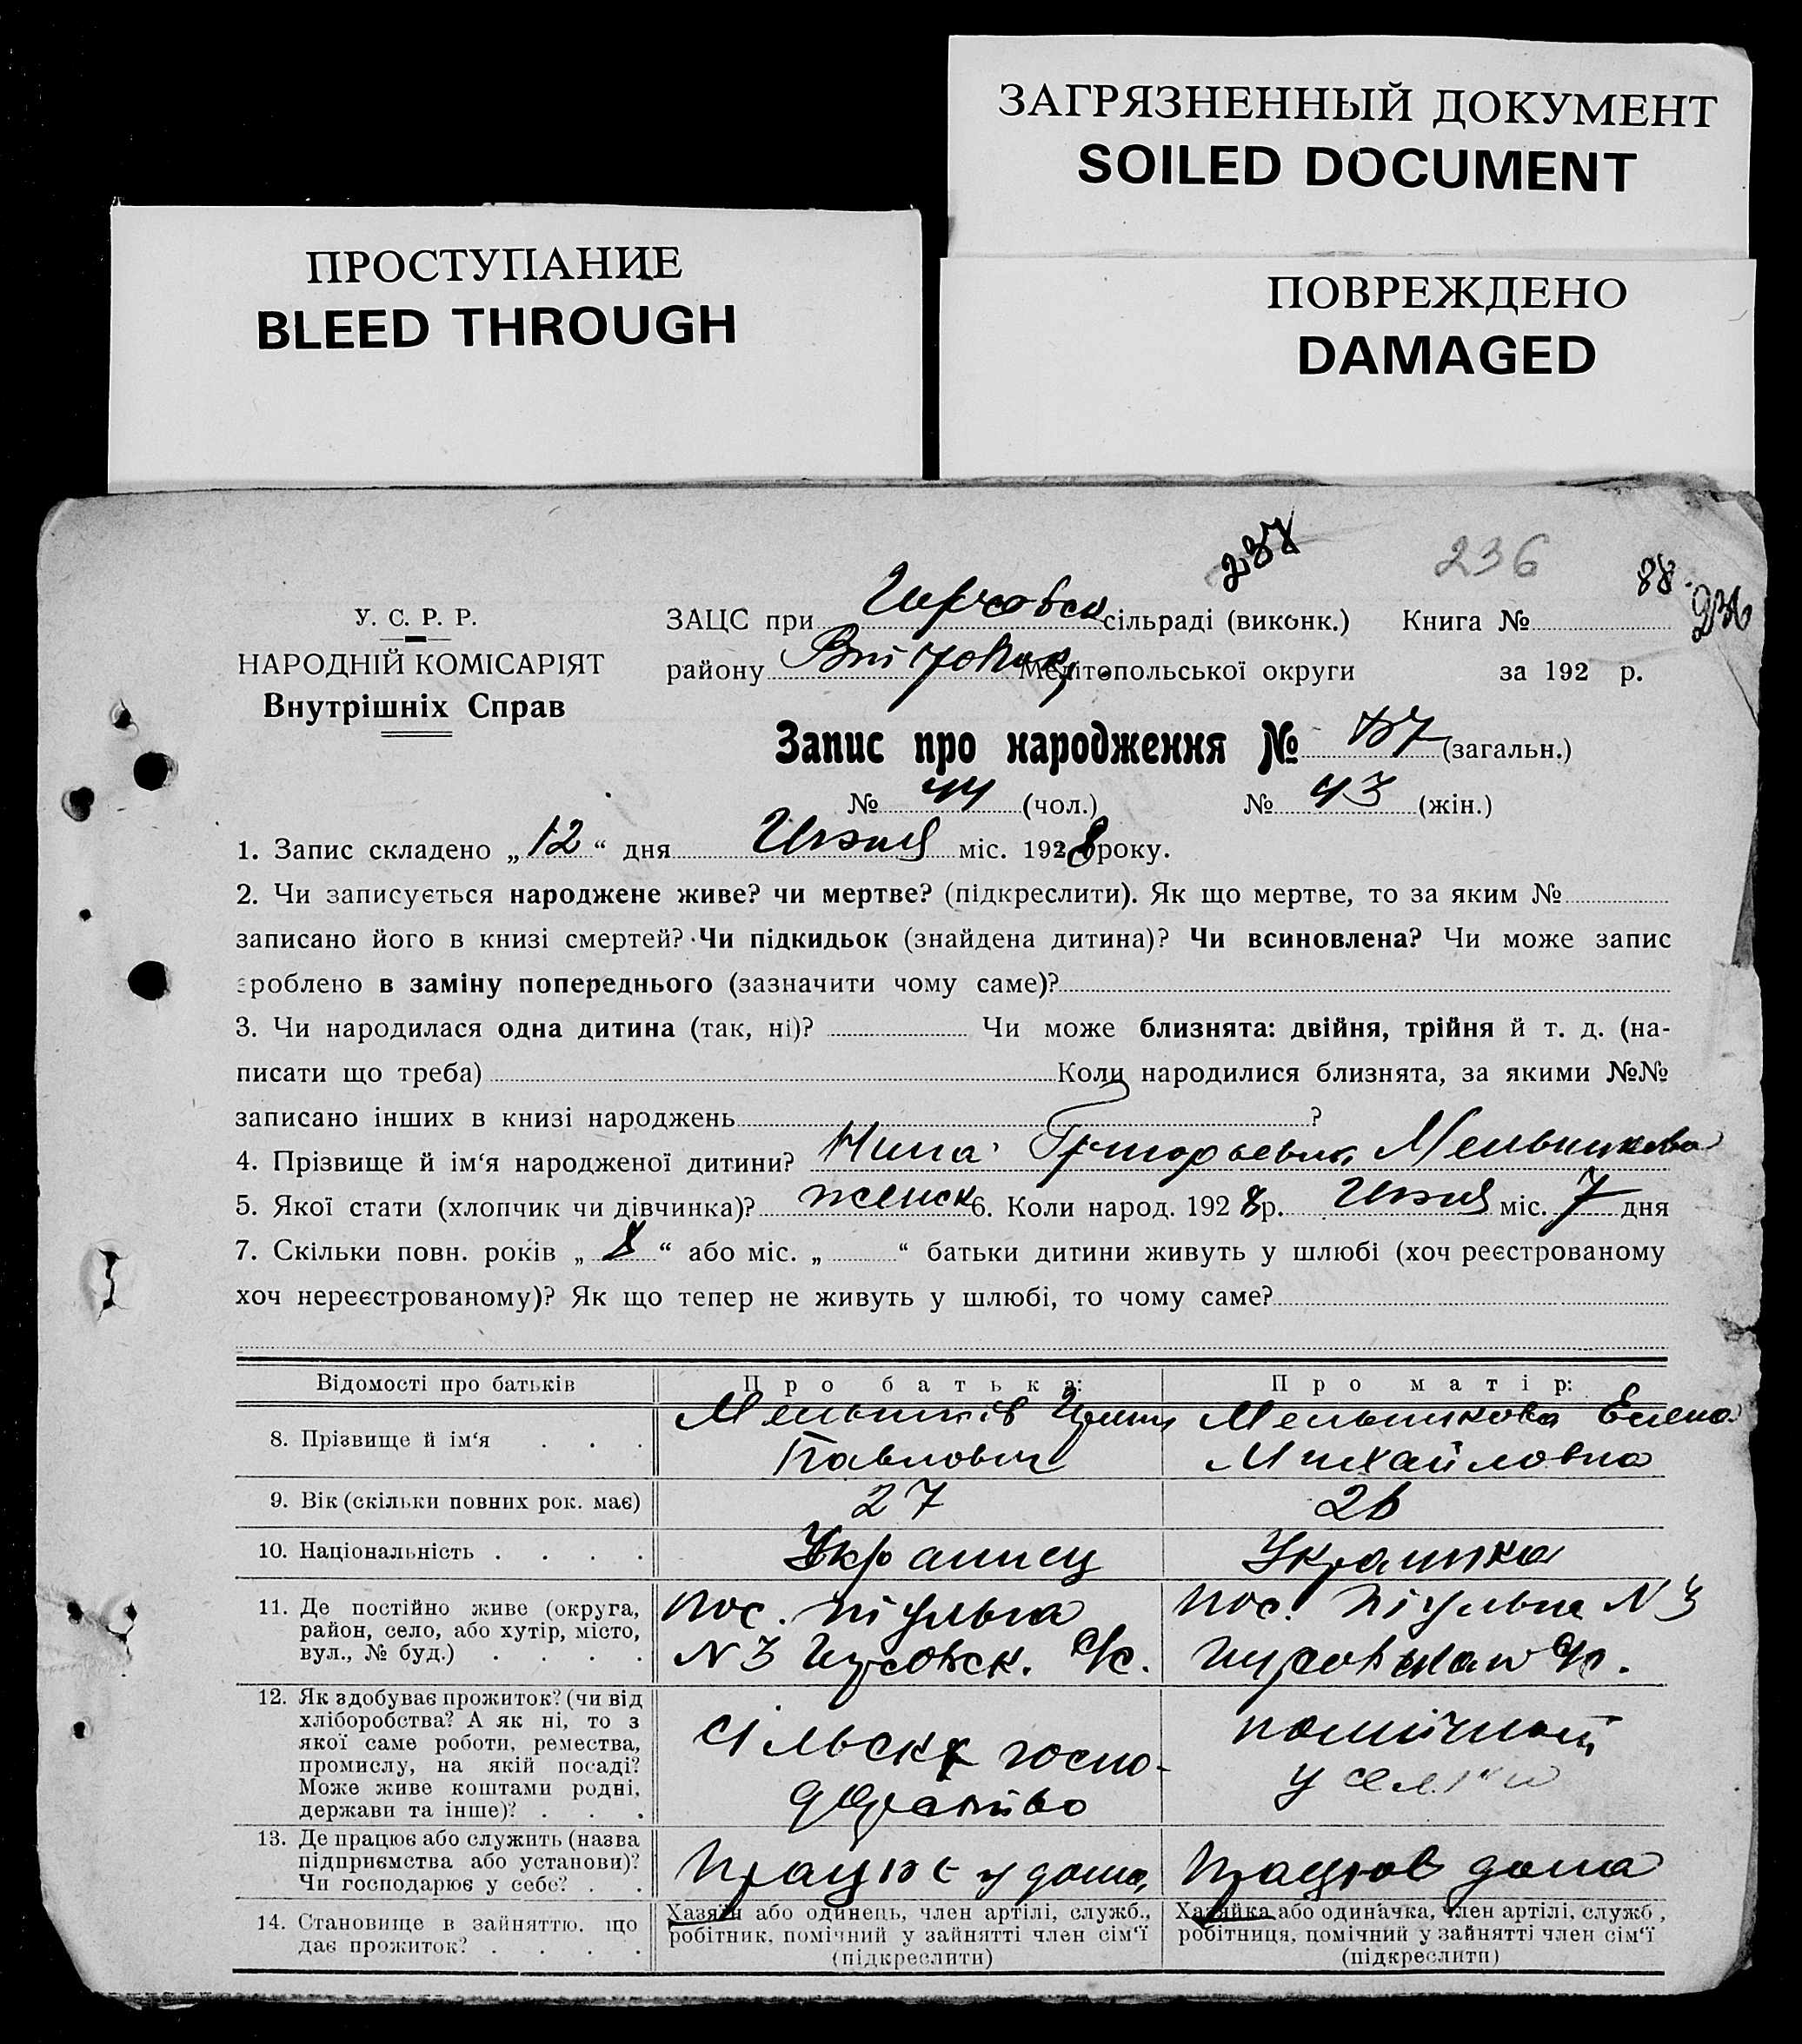 ЗАГРЯЗНЕННЫЙ ДОКУМЕНТ
SOILED DOCUMENT
ПРОСТУПАНИЕ
BLEED THROUGH
ПОВРЕЖДЕНО
DAMAGED
237
236
88
236
У. С. Р. Р.
НАРОДНІЙ КОМІСАРІЯТ
Внутрішніх Справ
ЗАЦС при сільраді (виконк.) Книга №
району Мелітопольської округи за 192 р.
Запис про народження № 87 (загальн.)
№ 44 (чол.) № 43 (жін.)
1. Запис складено „12“ дня Июля міс. 1928 року.
2. Чи записується народжене живе? чи мертве? (підкреслити). Як що мертве, то за яким №
записано його в книзі смертей? Чи підкидьок (знайдена дитина)? Чи всиновлена? Чи може запис
зроблено в заміну попереднього (зазначити чому саме)?
3. Чи народилася одна дитина (так, ні)? Чи може близнята: двійня, трійня й т. д. (на-
писати що треба) Коли народилися близнята, за якими №№
записано інших в книзі народжень ?
4. Прізвище й ім‘я народженої дитини? Нина Григорьевна Мельникова
5. Якої стати (хлопчик чи дівчинка)? женск 6. Коли народ. 1928 р. Июля міс. 7 дня
7. Скільки повн. років „8“ або міс. „ “ батьки дитини живуть у шлюбі (хоч реєстрованому
хоч нереєстрованому)? Як що тепер не живуть у шлюбі, то чому саме?
Відомості про батьків Про батька: Про матір:
8. Прізвище й ім‘я . . . Мельників Мельникова Елена
Павлович Михайловна
9. Вік (скільки повних рок. має) 27 26
10. Національність . . . . Украинец Украинка
11. Де постійно живе (округа, район, село, або хутір, місто, вул., № буд.) . . . . пос. N 3
N 3 с/с.
12. Як здобуває прожиток? (чи від хліборобства? А як ні, то з якої саме роботи, ремества, промислу, на якій посаді? Може живе коштами родні, держави та інше)? . . . сільске госпо-
дарство
у
13. Де працює або служить (назва підприємства або установи)? Чи господарює у себе? . . працює у дома працює дома
14. Становище в зайняттю, що дає прожиток? . . . .
Хазяїн або одинець, член артілі, служб., робітник, помічний у зайнятті член сім‘ї (підкреслити)
Хазяйка або одиначка, член артілі, служб , робітниця, помічний у зайнятті член сім‘ї (підкреслити)